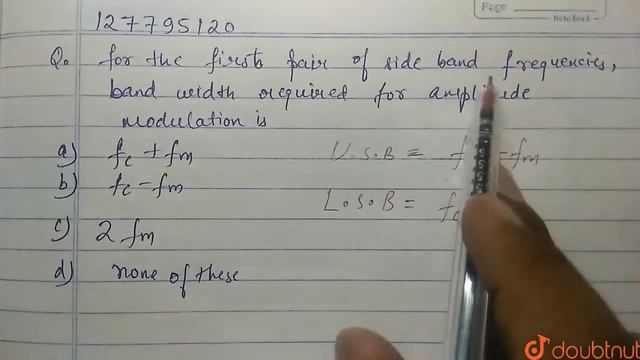 Page
NoteBook
127795120
Q. for the firsts pair of side band frequencies,
band width required for amplitude
modulation is
a) fc + fm U.S.B = f - fm
b) fc - fm L.S.B = fc
c) 2 fm
d) none of these
doubtnut